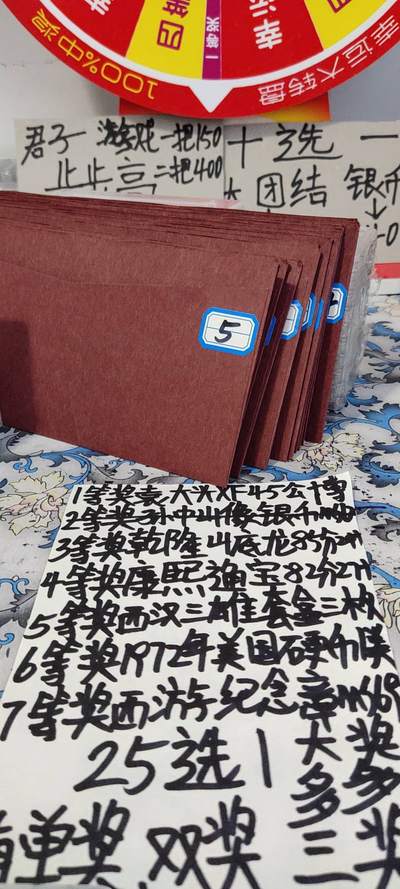 幸运
四等
一等奖
幸运
四
100%中奖
幸运大转盘
君子 游戏 一把150
止步高 二把400
十选一
团结 银币
5
1等奖袁大头XF45公博
2等奖孙中山像银币ms60
3等奖乾隆山底龙85分27
4等奖康熙通宝82分27
5等奖西汉三雄套盒三枚
6等奖1972年美国硬币
7等奖西游纪念章ms69
25选1 大奖
多多
单奖 双奖 三奖